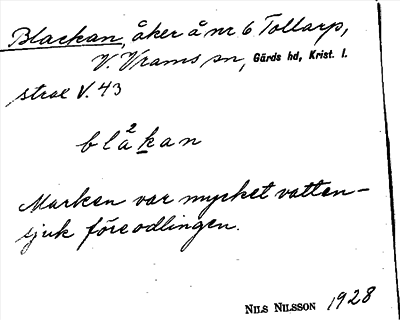 Blackan, åker å nr 6 Tollarp,
V. Vrams sn, Gärds hd, Krist. l.
strax V. 43
bla²kan
Marken var mycket vatten-
sjuk före odlingen.
NILS NILSSON 1928